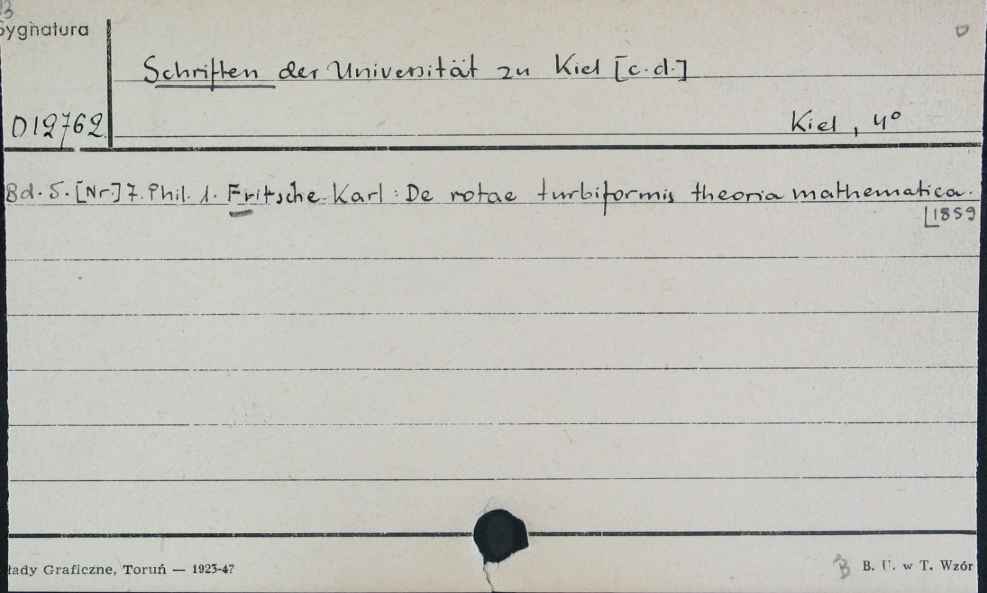 B
Sygnatura
Schriften der Universität zu Kiel [c.d.]
012762
Kiel, 4°
Bd. 5. [Nr] 7. Phil. 1. Fritsche Karl: De rotae turbiformis theoria mathematica.
[1859
łady Graficzne, Toruń — 1923-47
B B. U. w T. Wzór